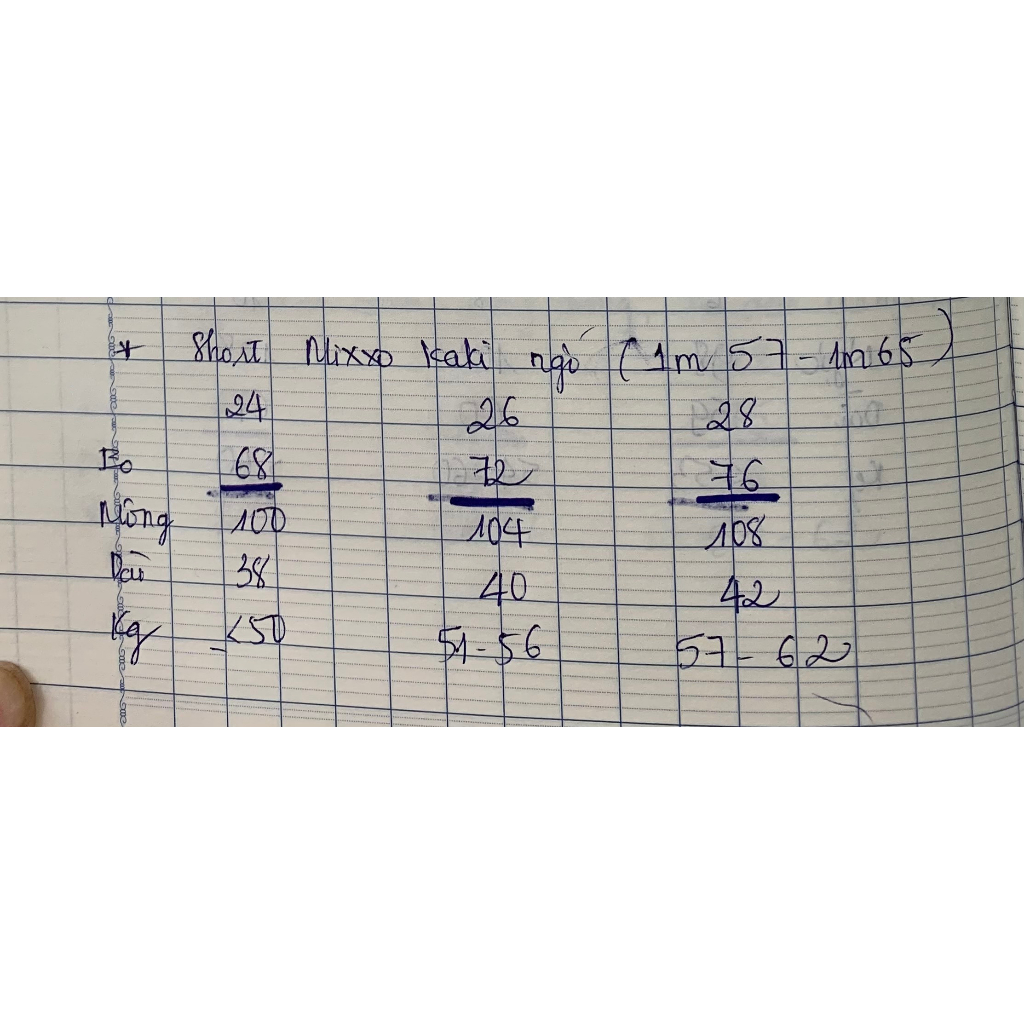 * Short Mixxo Kaki ngố (1m57 - 1m65)
24 26 28
Eo 68 72 76
Mông 100 104 108
Dài 38 40 42
Kg ≤50 51-56 57-62